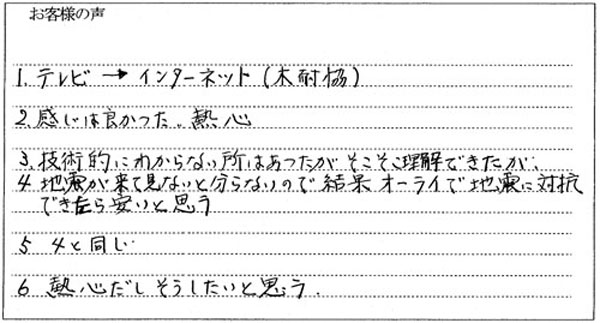 お客様の声
1. テレビ → インターネット (木耐協)
2. 感じは良かった。熱心
3. 技術的にわからない所はあったが そこそこ理解できたが、
4 地震が来て見ないと分らないので 結果オーライで地震に対抗
できたら安いと思う
5 4と同じ
6 熱心だし そうしたいと思う.